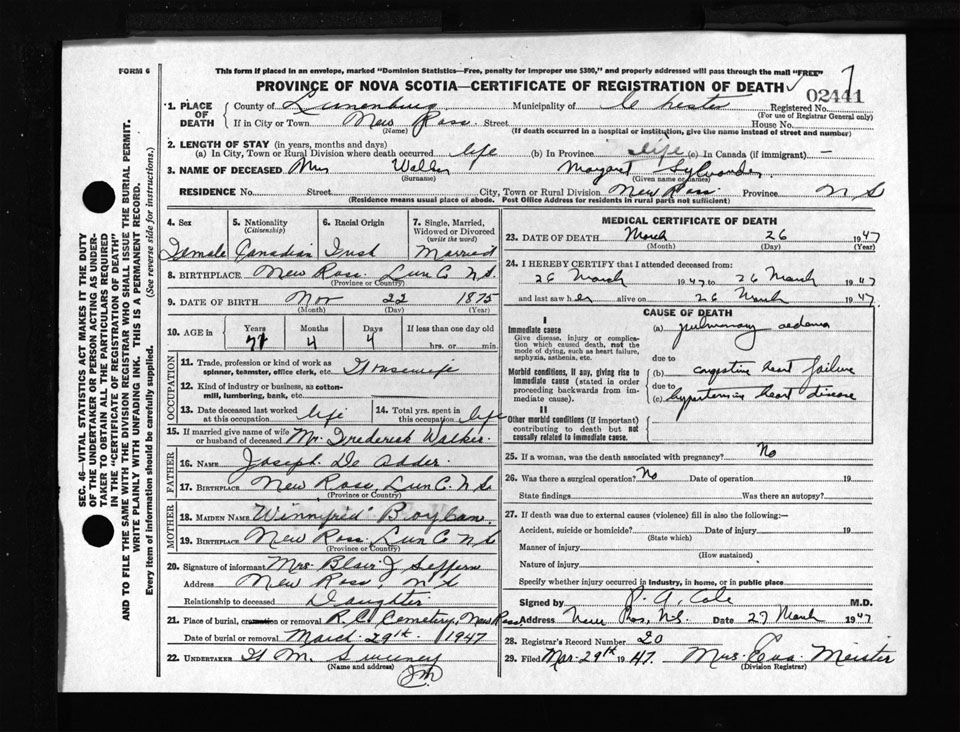 FORM 6
This form if placed in an envelope, marked "Dominion Statistics—Free, penalty for improper use $300," and properly addressed will pass through the mail "FREE"
PROVINCE OF NOVA SCOTIA—CERTIFICATE OF REGISTRATION OF DEATH
02441
1. PLACE OF DEATH
County of Lunenburg Municipality of Chester Registered No.
(For use of Registrar General only)
If in City or Town New Ross Street House No.
(Name) (If death occurred in a hospital or institution, give the name instead of street and number)
2. LENGTH OF STAY (in years, months and days)
(a) In City, Town or Rural Division where death occurred life (b) In Province life (c) In Canada (if immigrant) —
3. NAME OF DECEASED Mrs Margaret
(Surname) (Given name or names)
RESIDENCE No. Street City, Town or Rural Division New Ross Province N S
(Residence means usual place of abode. Post Office Address for residents in rural parts not sufficient)
4. Sex 5. Nationality (Citizenship) 6. Racial Origin 7. Single, Married, Widowed or Divorced (write the word)
Female Canadian Irish Married
8. BIRTHPLACE New Ross Lun C. N.S.
(Province or Country)
9. DATE OF BIRTH Nov 22 1875
(Month) (Day) (Year)
10. AGE in Years Months Days If less than one day old
71 4 4 hrs. or min.
OCCUPATION
11. Trade, profession or kind of work as spinner, teamster, office clerk, etc. Housewife
12. Kind of industry or business, as cotton-mill, lumbering, bank, etc.
13. Date deceased last worked at this occupation life 14. Total yrs. spent in this occupation life
15. If married give name of wife or husband of deceased Mr. Frederick Walker
FATHER
16. NAME Joseph De Adder
17. BIRTHPLACE New Ross, Lun C. N.S.
(Province or Country)
MOTHER
18. MAIDEN NAME Winnifred Boylan
19. BIRTHPLACE New Ross Lun C N S
(Province or Country)
20. Signature of informant Mrs. Blair J Seffern
Address New Ross, N S
Relationship to deceased Daughter
21. Place of burial, cremation or removal R.C. Cemetery, New Ross
Date of burial or removal March 29th 1947
22. UNDERTAKER H M Swiney
(Name and address)
MEDICAL CERTIFICATE OF DEATH
23. DATE OF DEATH March 26 1947
(Month) (Day) (Year)
24. I HEREBY CERTIFY that I attended deceased from:
26 March 1947 to 26 March 1947
and last saw her alive on 26 March 1947
CAUSE OF DEATH
I
Immediate cause
Give disease, injury or complication which caused death, not the mode of dying, such as heart failure, asphyxia, asthenia, etc.
(a) pulmonary oedema
due to
Morbid conditions, if any, giving rise to immediate cause (stated in order proceeding backwards from immediate cause).
(b) congestive heart failure
due to
(c) hypertensive heart disease
II
Other morbid conditions (if important) contributing to death but not causally related to immediate cause.
25. If a woman, was the death associated with pregnancy? No
26. Was there a surgical operation? No Date of operation 19
State findings Was there an autopsy?
27. If death was due to external causes (violence) fill in also the following:—
Accident, suicide or homicide? Date of injury 19
(State which)
Manner of injury
(How sustained)
Nature of injury
Specify whether injury occurred in industry, in home, or in public place
Signed by P. A. Cole M.D.
Address New Ross, N.S. Date 27 March 1947
28. Registrar's Record Number 20
29. Filed Mar. 29th 1947. Mrs. Eva Meister
(Division Registrar)
SEC. 46—VITAL STATISTICS ACT MAKES IT THE DUTY
OF THE UNDERTAKER OR PERSON ACTING AS UNDERTAKER
TO OBTAIN ALL THE PARTICULARS REQUIRED
IN THE "CERTIFICATE OF REGISTRATION OF DEATH"
AND TO FILE THE SAME WITH THE DIVISION REGISTRAR WHO SHALL ISSUE THE BURIAL PERMIT.
WRITE PLAINLY WITH UNFADING INK. THIS IS A PERMANENT RECORD.
Every item of information should be carefully supplied. (See reverse side for instructions.)